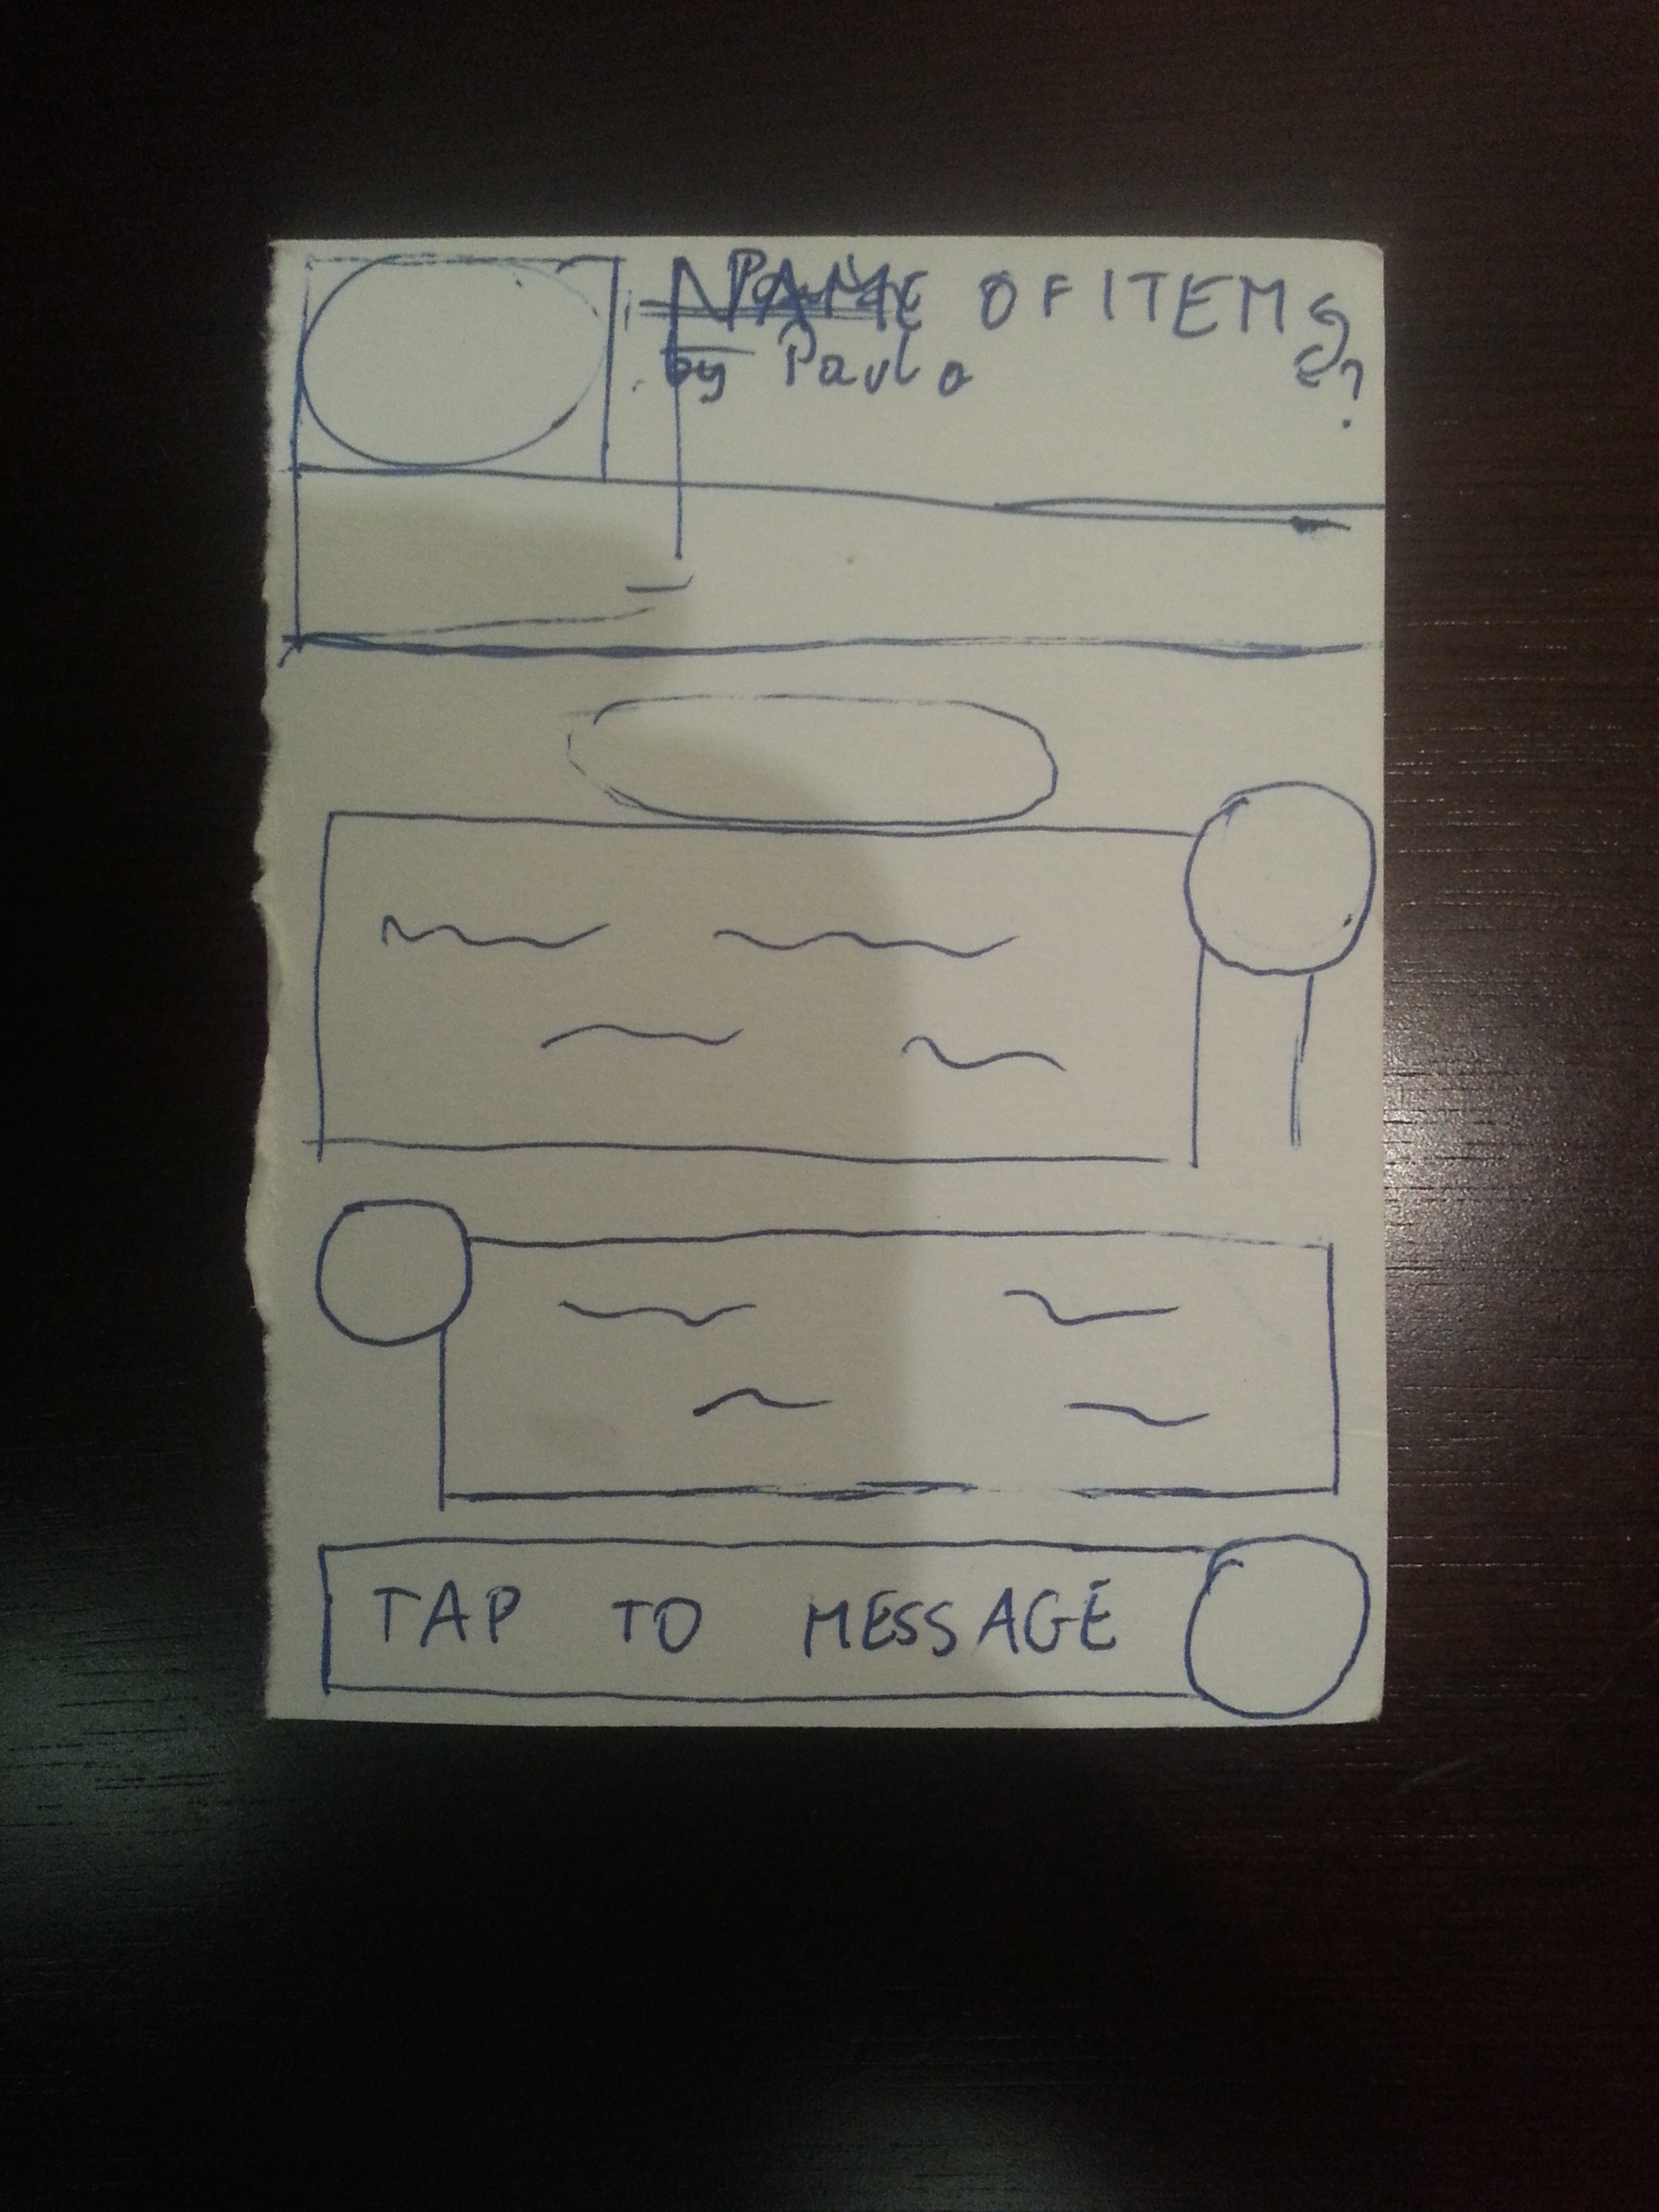 NAME OF ITEM
by Paula
?
TAP TO MESSAGE